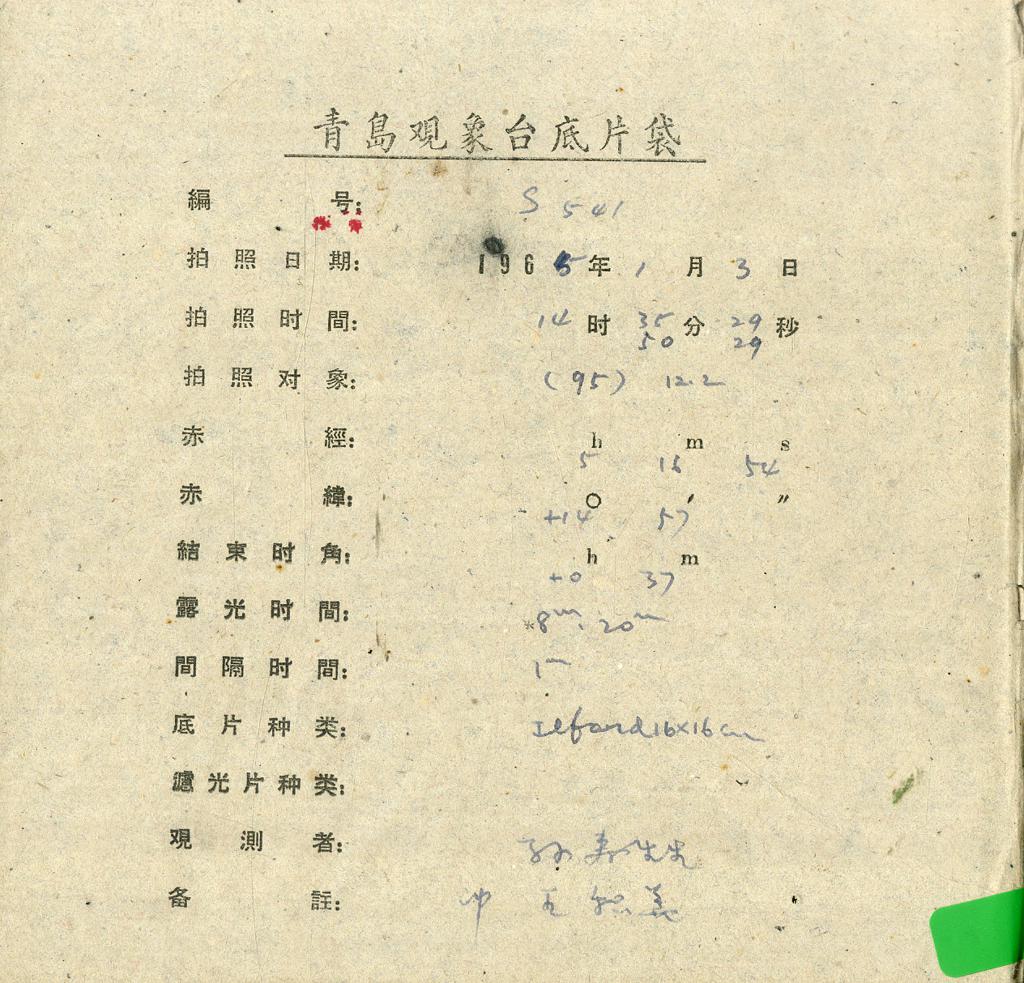 青島观象台底片袋
編号: S 541
拍照日期: 1965年1月3日
拍照时間: 14时35分29秒
50 29
拍照对象: (95) 12.2
赤經: h m s
5 16 54
赤緯: ○ ′ ″
+14 57
結束时角: h m
+0 37
露光时間: 8m. 20m
間隔时間: 1m
底片种类: Ilford 16×16cm
濾光片种类:
观測者:
备註: